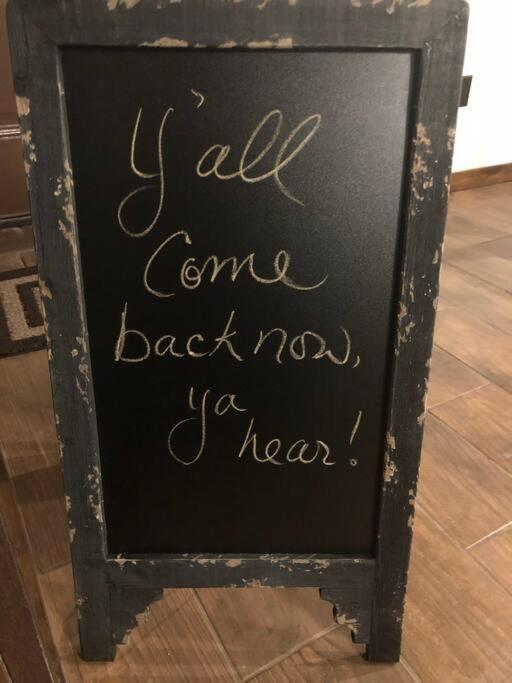 Y'all
Come
back now,
ya
hear!